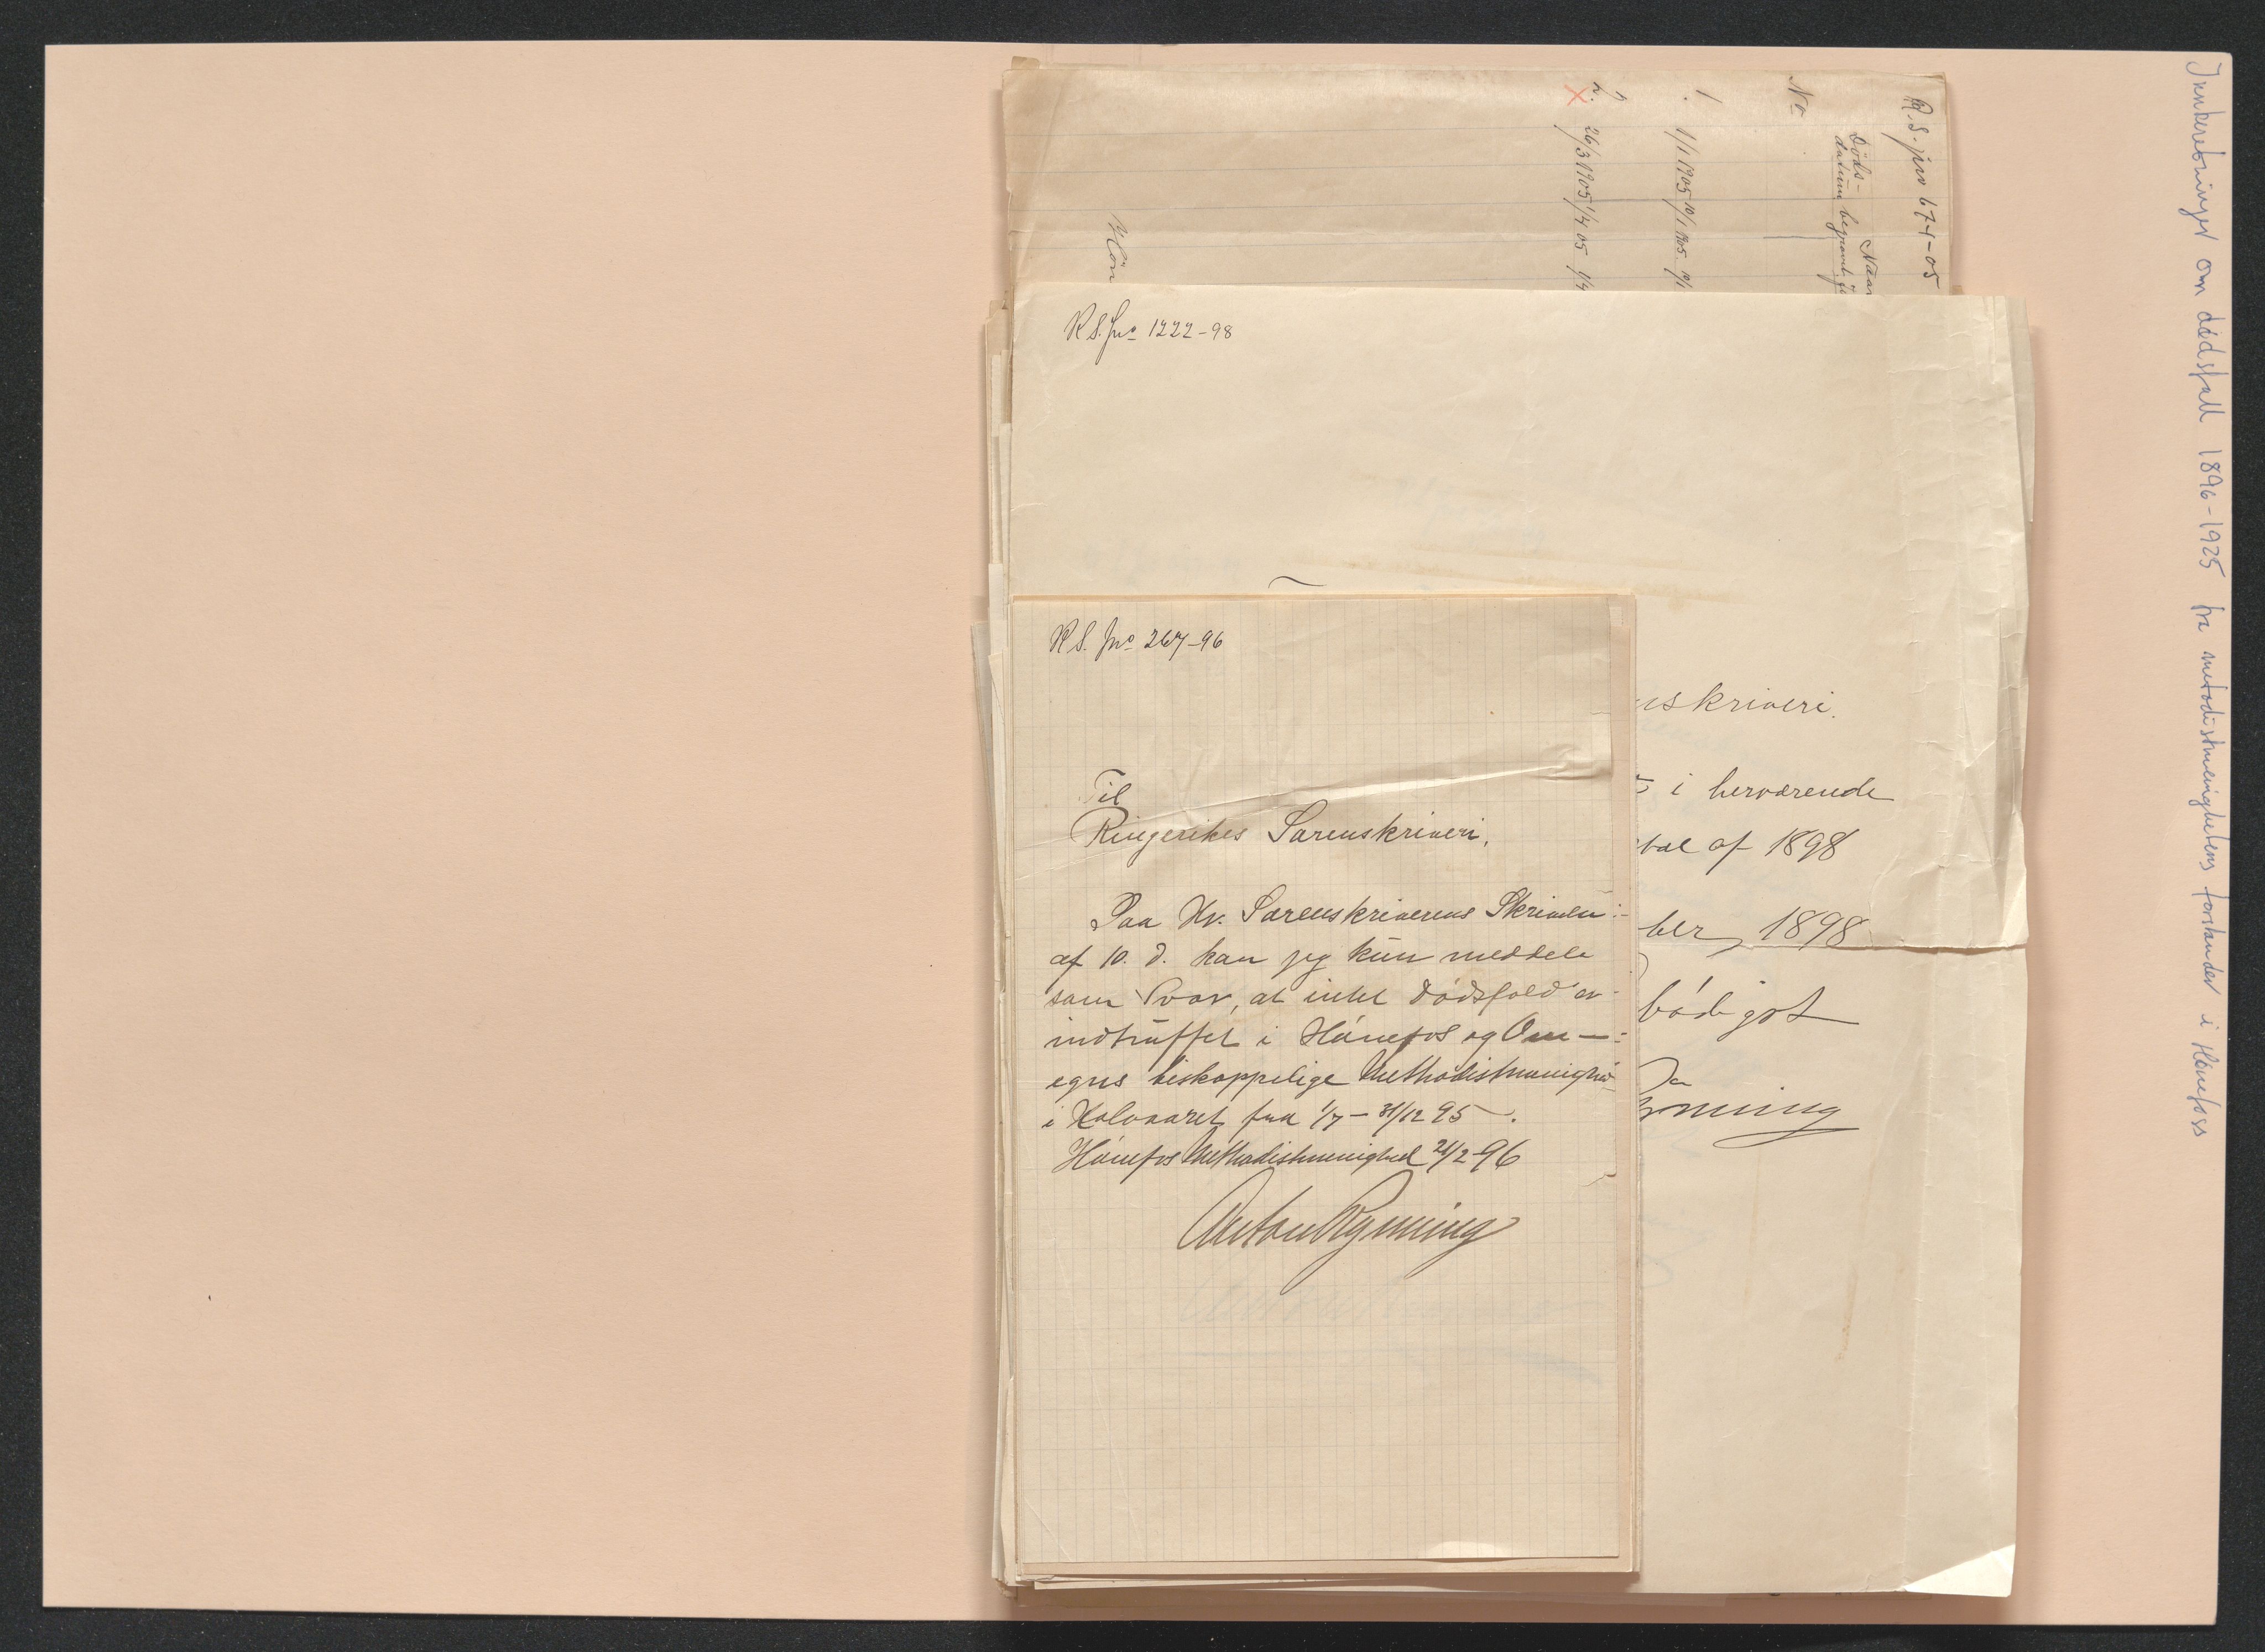 Innberetninger om dødsfall 1896-1925 fra metodistmenighetens forstander i Hønefoss
R.S. jno 674-05
Nº
Døds-
datum
begravet
1. 1/1 1905 10/1 1905
2. 26/3 1905 1/4 05
X
Høn
R.S. Jnº 1222-98
nskriveri.
i herværende
tal af 1898
ber, 1898
bødigst
Rynning
R.S. Jnº 267-96
Til
Ringerikes Sorenskriveri.
Paa Hr. Sorenskriverens Skrivelse
af 10. d. kan jeg kun meddele
som Svar, at intet Dødsfald er
indtruffet i Hönefos og Om-
egns biskoppelige Methodistmenighed
i Halvaaret fra 1/7 - 31/12 95.
Hönefos Methodistmenighed 21/2-96
Anton Rynning